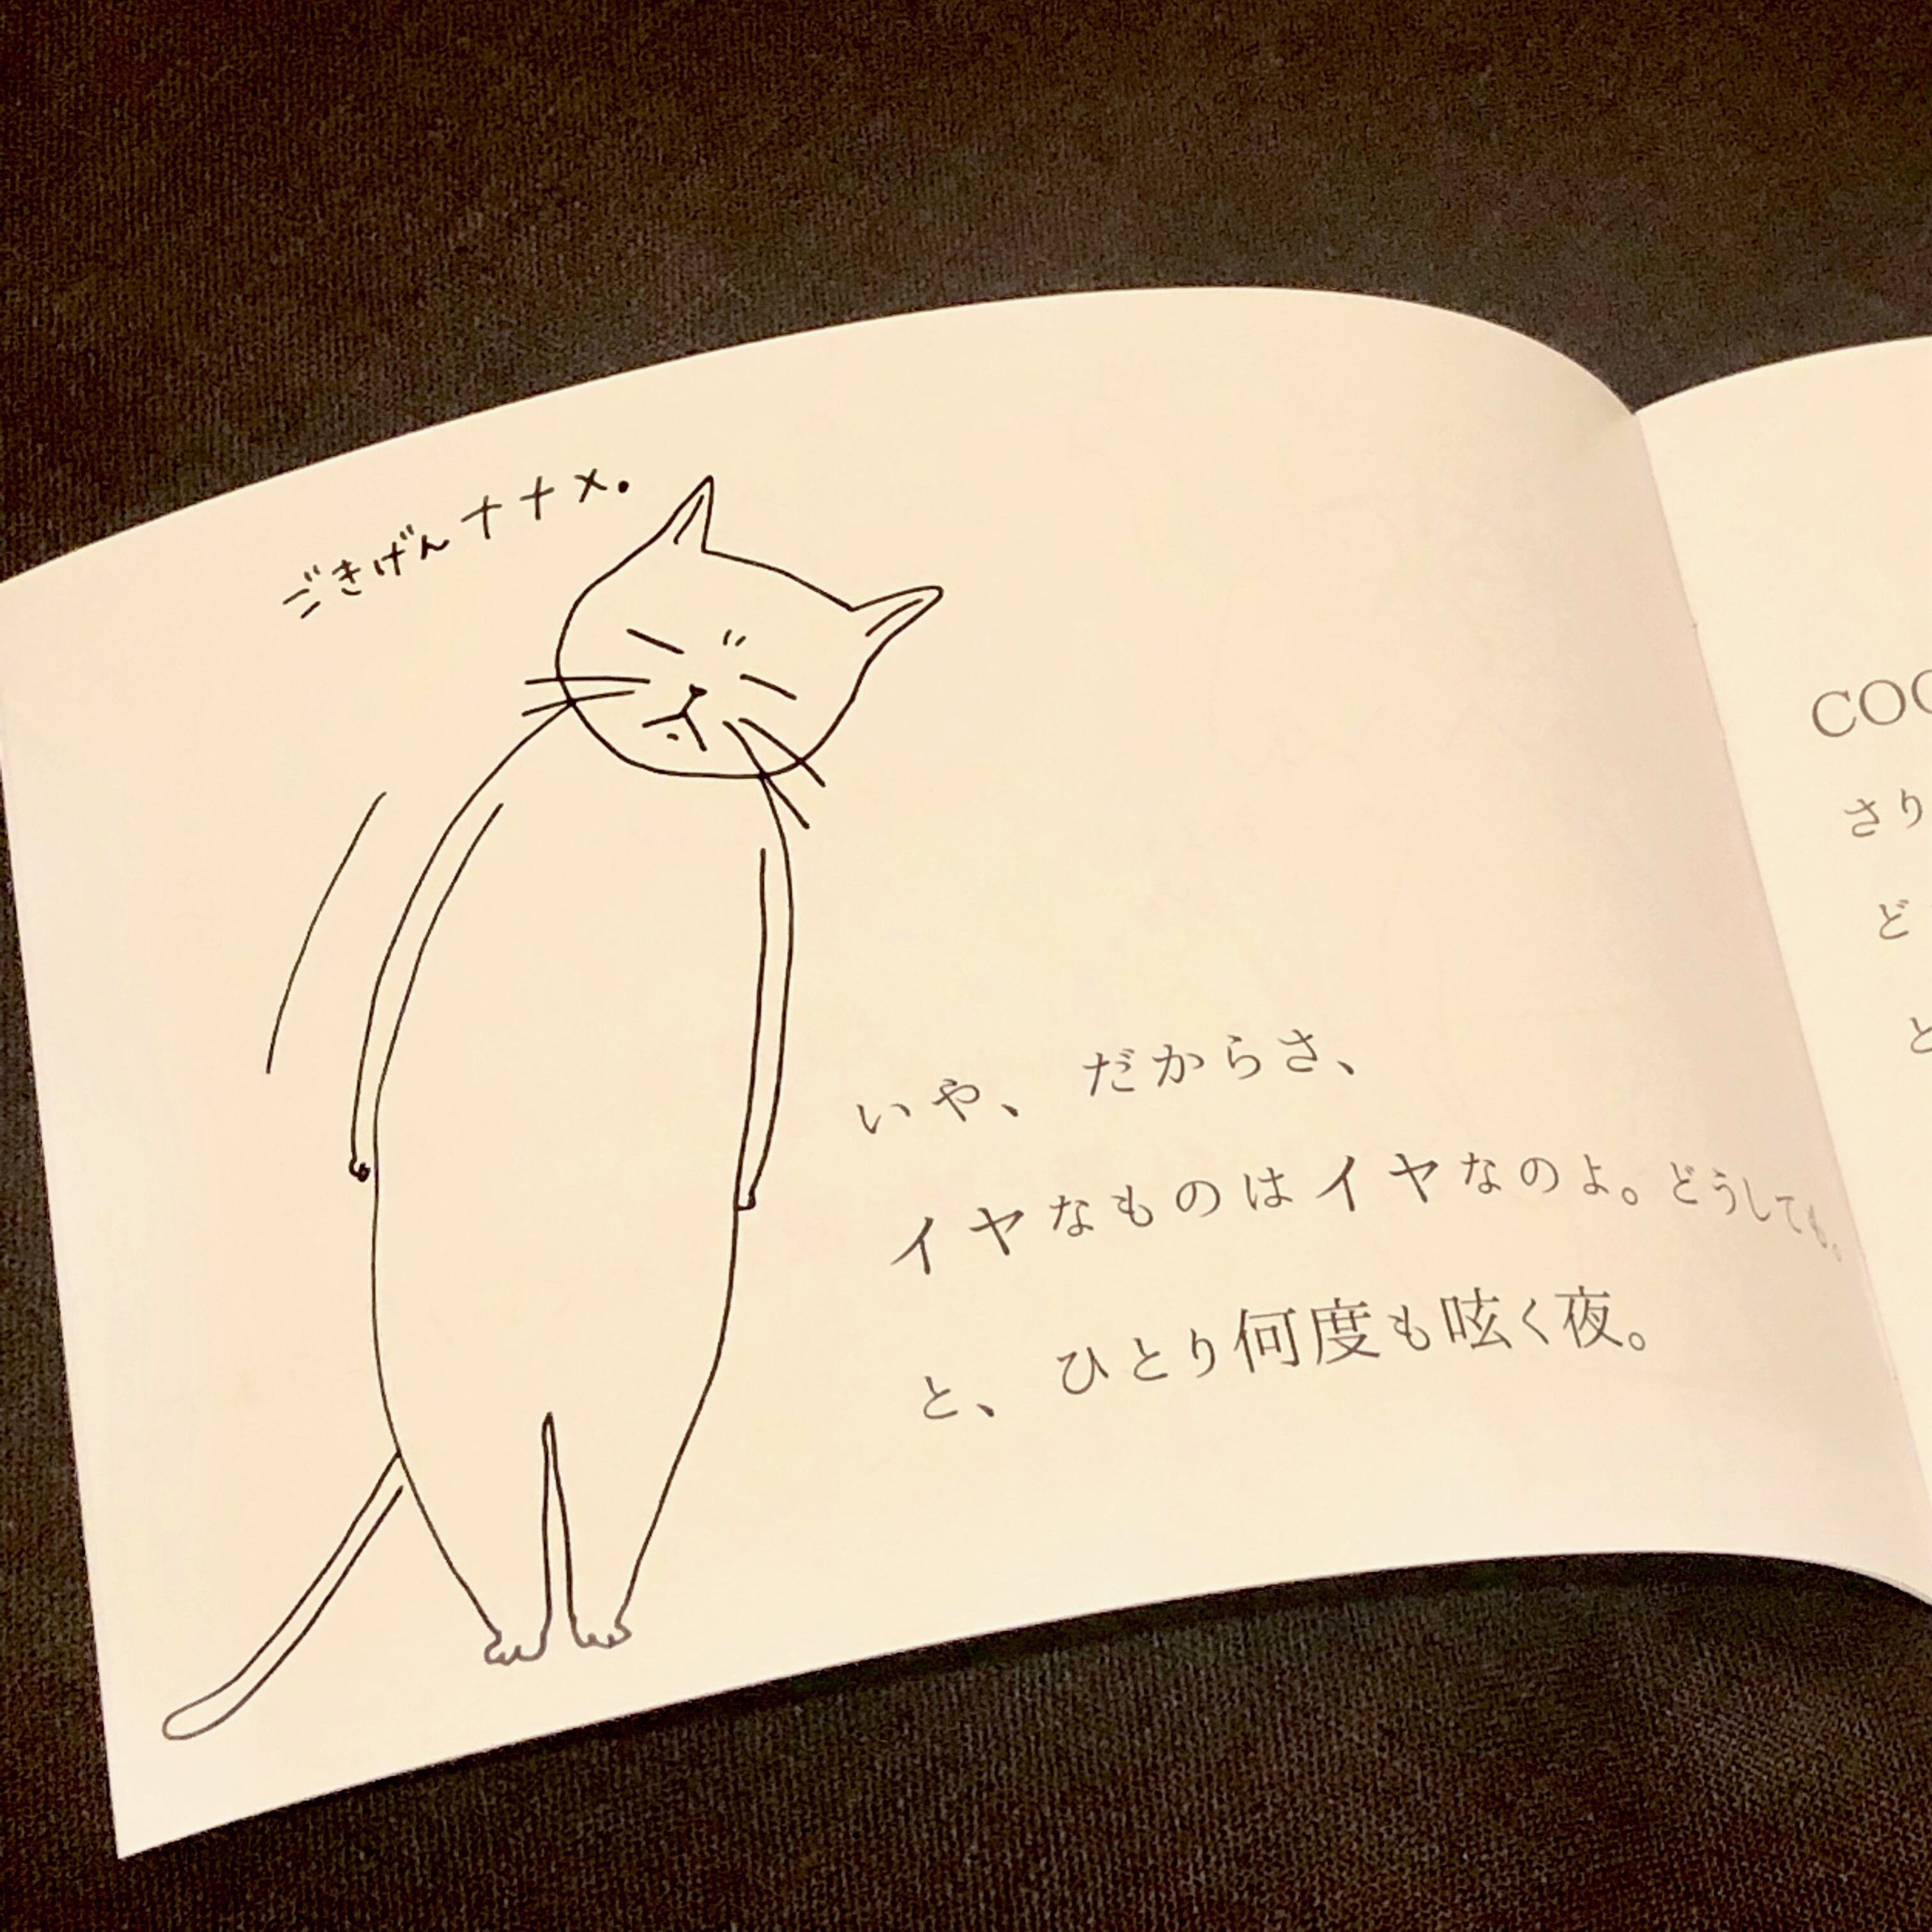 ごきげんナナメ.
いや、だからさ、
イヤなものはイヤなのよ。どうしても。
と、ひとり何度も呟く夜。
さり
ど
と